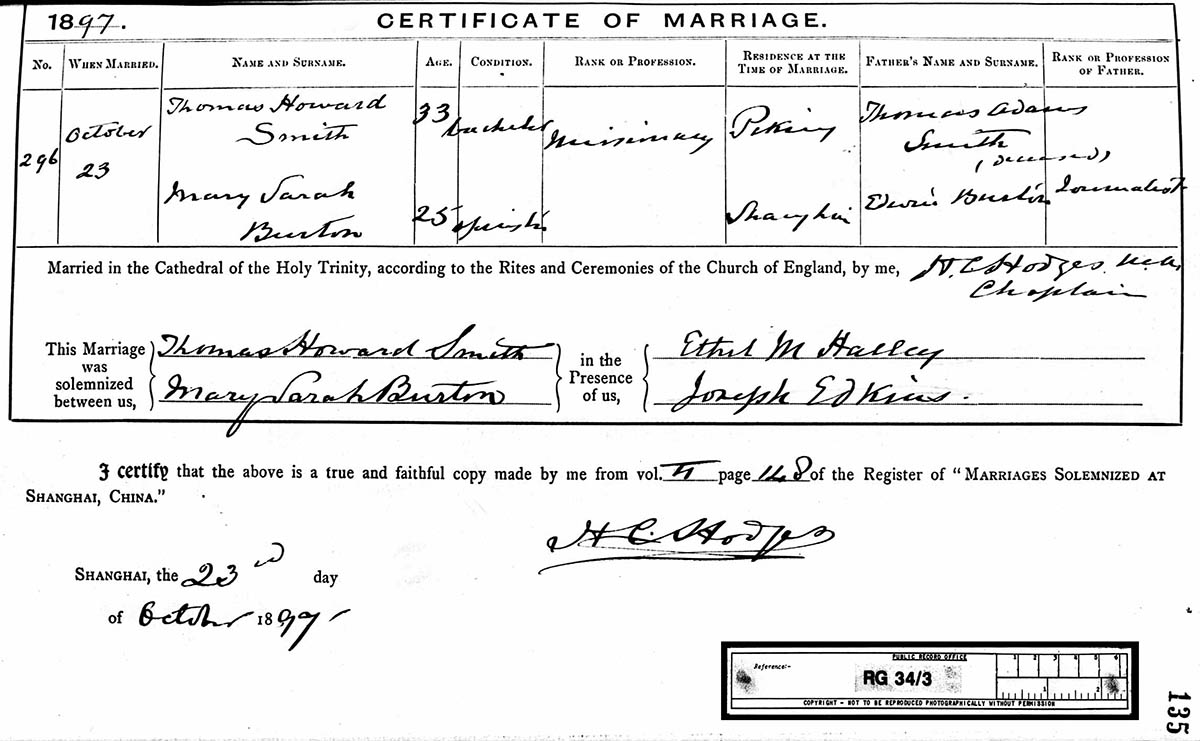 1897. CERTIFICATE OF MARRIAGE.
No. WHEN MARRIED. NAME AND SURNAME. AGE. CONDITION. RANK OR PROFESSION. RESIDENCE AT THE TIME OF MARRIAGE. FATHER'S NAME AND SURNAME. RANK OR PROFESSION OF FATHER.
296 October 23 Thomas Howard Smith 33 bachelor Missionary Peking Thomas Adams Smith (deceased)
Mary Sarah Burton 25 spinster Shanghai Edwin Burton Journalist
Married in the Cathedral of the Holy Trinity, according to the Rites and Ceremonies of the Church of England, by me, H. C. Hodges. M.A.
Chaplain
This Marriage was solemnized between us, Thomas Howard Smith
Mary Sarah Burton
in the Presence of us, Ethel M Halley
Joseph Edkins.
I certify that the above is a true and faithful copy made by me from vol. page 148 of the Register of "MARRIAGES SOLEMNIZED AT
SHANGHAI, CHINA."
H C Hodges
SHANGHAI, the 23rd day
of October 1897
PUBLIC RECORD OFFICE
1 2 3 4 5 6
Reference:-
RG 34/3
1 2
COPYRIGHT - NOT TO BE REPRODUCED PHOTOGRAPHICALLY WITHOUT PERMISSION
135